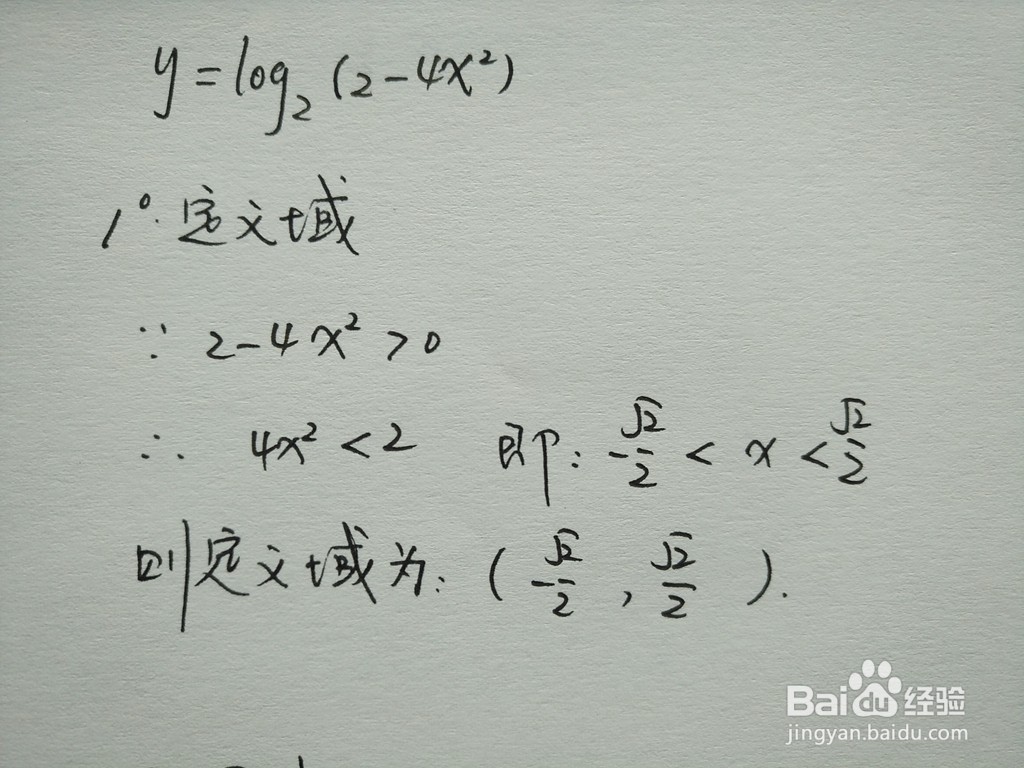 y=log₂(2-4x²)
1°.定义域
∵ 2-4x²>0
∴ 4x²<2 即:-√2/2<x<√2/2
则定义域为:(-√2/2,√2/2).
Bai du 经验
jingyan.baidu.com